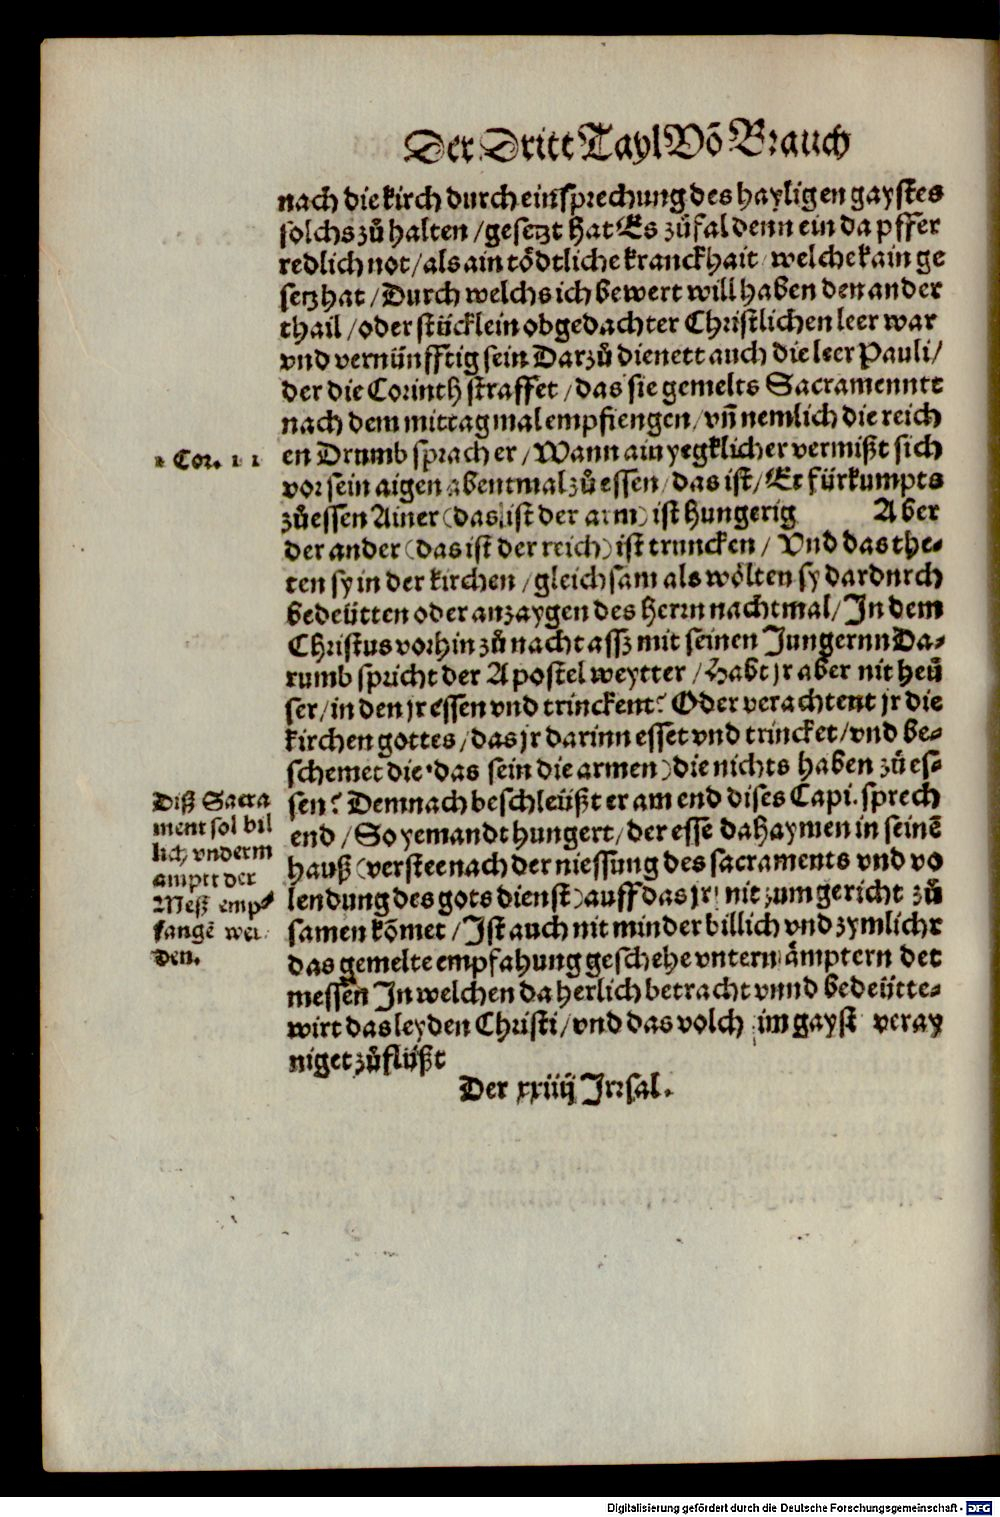 Der Dritt Tayl Vō Brauch
nach die kirch durch einsprechung des hayligen gaystes
solchs zů halten / gesetzt hat Es zů fal denn ein dapffer
redlich not / als ain tödtliche kranckhait / welche kain ge
setz hat / Durch welchs ich bewert will haben den ander
thail / oder stücklein obgedachter Christlichen leer war
vnd vernünfftig sein Darzů dienett auch die leer Pauli /
der die Corinth straffet / das sie gemelts Sacramenntt
nach dem mittag mal empfiengen / vn̄ nemlich die reich
1 Cor. 11
en Drumb sprach er / Wann ain yegklicher vermißt sich
vor sein aigen abentmal zů essen / das ist / Er fürkumpts
zů essen Ainer (das ist der arm) ist hungerig Aber
der ander (das ist der reich) ist truncken / Vnd das the-
ten sy in der kirchen / gleich sam als wölten sy dardurch
bedeütten oder anzaygen des Herrn nachtmal / In dem
Christus vorhin zů nacht assz mit seinen Jungernn Da-
rumb spricht der Apostel weytter / Habt jr aber nit heü
ser / in den jr essen vnd trinckent? Oder verachtent jr die
kirchen gottes / das jr darinn esset vnd trincket / vnd be-
schemet die · das sein die armen) die nichts haben zů es-
sen? Demnach beschleüßt er am end dises Capi. sprech
end / So yemandt hungert / der esse dahaymen in seinē
hauß (verstee nach der niessung des sacraments vnd vo
lendung des gots dienst) auff das jr nit zum gericht zů
samen kōmet / Ist auch nit minder billich vnd zymlichr
das gemelte empfahung geschehe vntern ämptern det
messen In welchen da herlich betracht vnnd bedeütte-
wirt das leyden Christi / vnd das volch im gayst veray
niget zů flüßt
Diß Sacra
ment sol bil
lich vnderm
amptt der
Meß emp-
fangē wer
den.
Der xxiiij Irrsal.
Digitalisierung gefördert durch die Deutsche Forschungsgemeinschaft - DFG